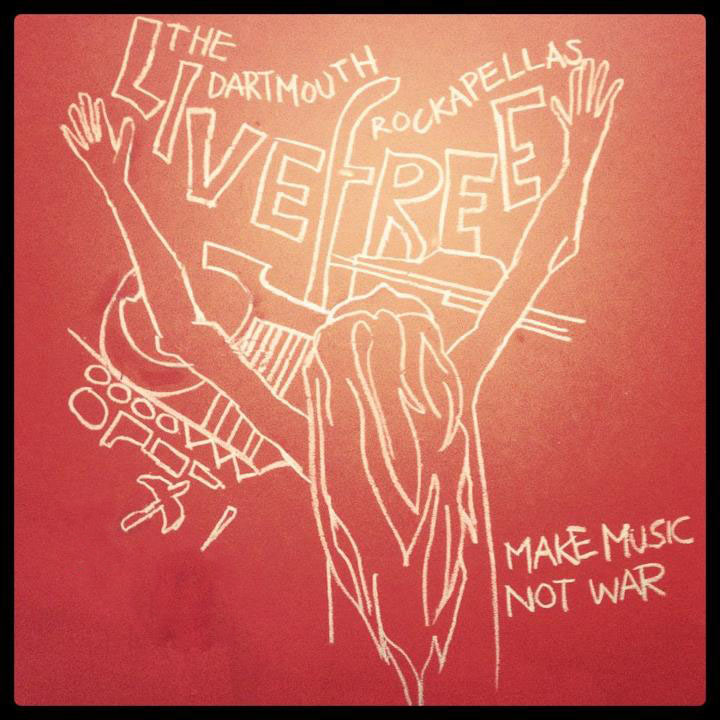 THE
DARTMOUTH
ROCKAPELLAS
LIVE fREE
MAKE MUSIC
NOT WAR